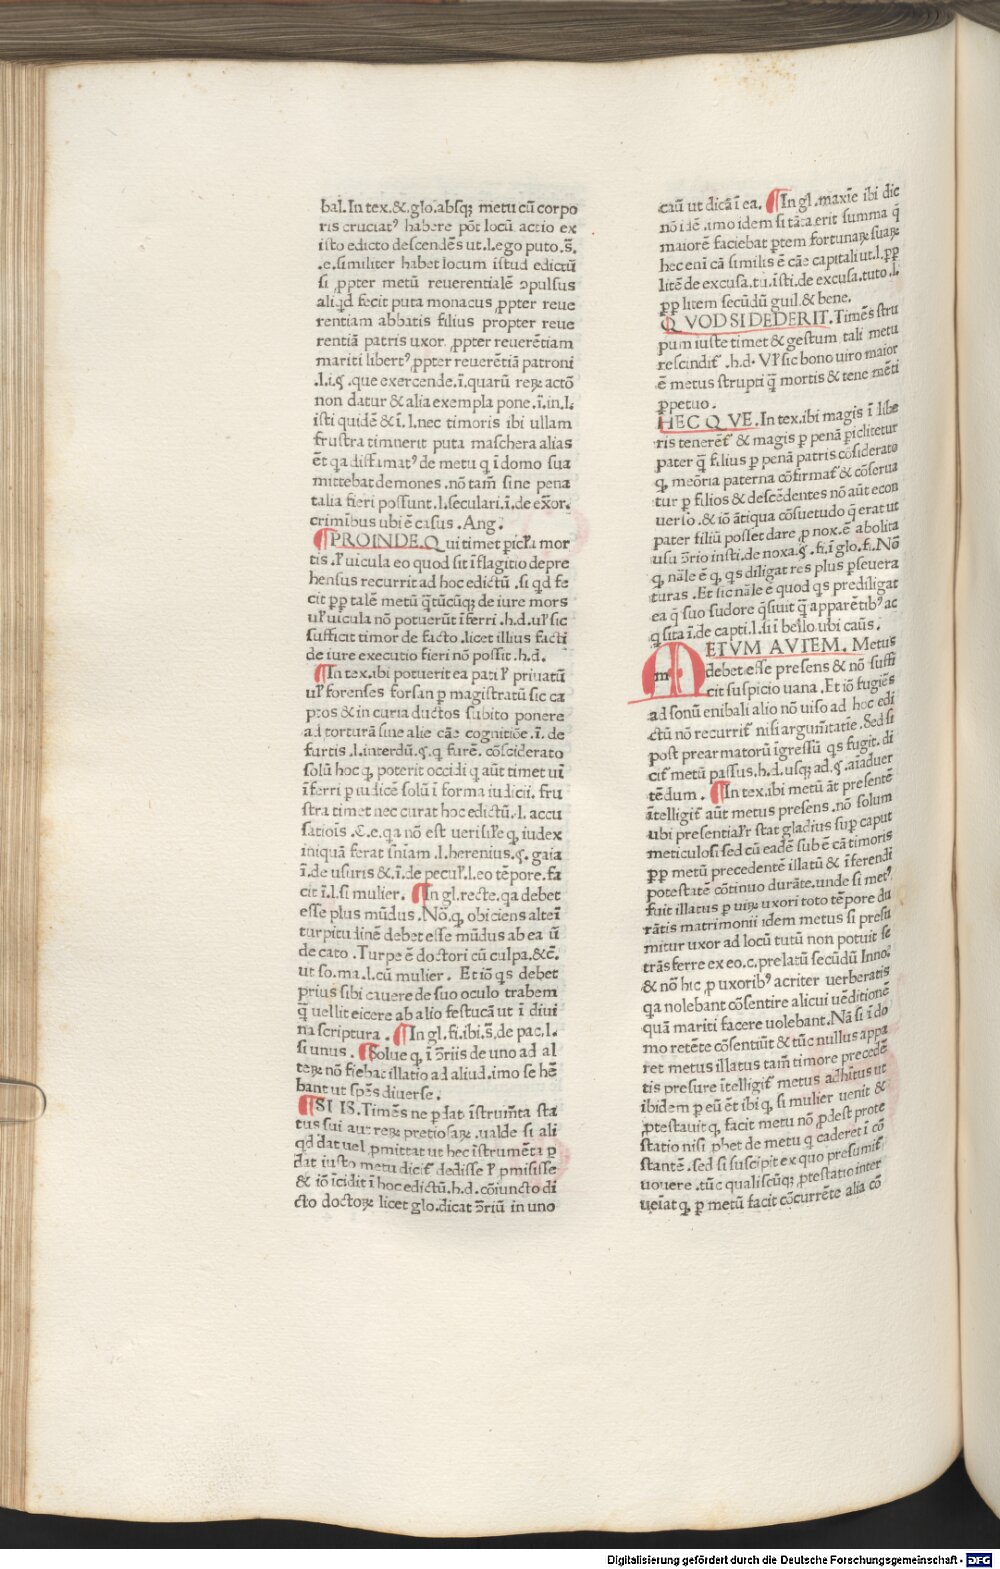 bal̃.In tex.&.glo.absqꝫ metu cū corpo
ris cruciatꝰ habere põt locū actio ex
isto edicto descendẽs ut.l.ego puto.s̃.
.e.similiter habet locum istud edictū
si ꝓpter metū reuerentialẽ ꝓpulsus
aliq̇d fecit puta monacus ꝓpter reue
rentiam abbatis filius propter reue
rentiã patris uxor ꝓpter reuerẽtiam
mariti libertꝰ ꝓpter reuerẽtiã patroni
.l.i.§.que exercende.ĩ.quarũ reꝝ actõ
non datur & alia exempla pone.ĩ.in.l.
isti quidẽ & ĩ.l.nec timoris ibi ullam
frustra timuerit puta maschera alias
ẽt qa diffamatꝰ de metu q ĩ domo sua
mittebat demones.nõ tam̃ sine pena
talia fieri possunt.l.seculari.ĩ.de ex̃or.
crimĩbus ubi ẽ casus.Ang.
¶PROINDE.Qui timet ꝑicl̃a mor
tis.l̃ uicula eo quod sit ĩ flagitio depre
hensus recurrit ad hoc edictū.si qd fe
cit ꝓp talẽ metū q̃tũcũqꝫ de iure mors
ul̃ uicula nõ potuerũt ĩferri.h.d.ul̃ sic
sufficit timor de facto.licet illius facti
de iure executio fieri nõ possit.h.d.
¶In tex.ibi potuerit ea pati l̃ priuatũ
ul̃ forenses forsan ꝑ magistratũ sic ca
ptos & in curia ductos subito ponere
ad torturã sine alie cãe cognitiõe.ĩ.de
furtis.l.interdũ.§.q furẽ.cõsciderato
solũ hoc ꝙ poterit occidi q aũt timet uĩ
ĩferri ꝑ iudicẽ solũ ĩ forma iudicii.fru
stra timet nec curat hoc edictū.l.accu
satiõis.C.e.qa nõ est uerisil̃e ꝙ iudex
iniquã ferat sniam.l.herenius.§.gaia
ĩ.de usuris & ĩ.de pecul̃.l.eo tẽpore.fa
cit ĩ.l.si mulier. ¶In gl.recte.qa debet
esse plus mũdus.Nõ.ꝙ obiciens alteĩ
turpitudinẽ debet esse mũdus ab ea ũ
de cato.Turpe ẽ doctori cũ culpa.&c̃.
ut so.ma.l.cũ mulier. Et iõ qs debet
prius sibi cauere de suo oculo trabem
q̃ uellit eicere ab alio festucã ut ĩ diui
na scriptura. ¶In gl.fi.ibi.s̃.de pac.l.
si unus. ¶Solue ꝙ ĩ ꝯriis de uno ad al
teꝝ nõ fiebat illatio ad aliud.imo se hẽ
bant ut spẽs diuerse.
¶SI IS.Timẽs ne ꝑdat ĩstrum̃ta sta
tus sui aut reꝝ pretiosaꝝ.ualde si ali
qd dat uel ꝓmittat ut hec ĩstrumẽta ꝑ
dat iusto metu dicit̃ dedisse l̃ ꝓmisisse
& iõ ĩcidit ĩ hoc edictũ.h.d.cõiuncto di
cto doctoꝝ licet glo.dicat ꝯriũ in uno
caũ ut dicã ĩ ea. ¶In gl.maxĩe ibi dic
nõ idẽ.imo idem si tãta erit summa q̃
maiorẽ faciebat ꝑtem fortunaꝝ suaꝝ
hec enĩ cã similis ẽ cãe capitali ut.l.ꝓp
litẽ de excusa.tu.ĩsti.de excusa.tuto.l.
ꝓp litem secũdũ guil.& bene.
QVOD SI DEDERIT.Timẽs stru
pum iuste timet & gestum tali metu
rescindit̃.h.d.Vl̃ sic bono uiro maior
ẽ metus strupti q̃ mortis & tene mẽti
ꝑpetuo.
HEC QVE.In tex.ibi magis ĩ libe
ris terrent̃ & magis ꝑ penã ꝑiclitetur
pater q̃ filius ꝑ penã patris cõsiderato
ꝙ meõria paterna cõfirmat̃ & cõserua
tur ꝑ filios & descẽdentes nõ aũt econ
uerso.& iõ ãtiqua cõsuetudo q̃ erat ut
pater filiũ posset dare ꝓ nox.ẽ abolita
usu ꝯrio insti.de noxa.§.fi.ĩ glo.fi.Nõ
ꝙ nãle ẽ ꝙ qs diligat res plus ꝑseuera
turas.Et sic nãle ẽ quod qs prediligat
ea q̃ suo sudore q̃siuit q̃ apparẽtibꝰ ac
q̃sita ĩ.de capti.l.si ĩ bello.ubi caũs.
METVM AVTEM. Metus
debet esse presens & nõ suffi
cit suspicio uana.Et iõ fugiẽs
ad sonũ enibali alio nõ uiso ad hoc edi
ctũ nõ recurrit̃ nisi argum̃tatie.Sed si
post prearmatorũ igressũ qs fugit.di
cit̃ metũ passus.h.d.usqꝫ ad.§.aĩaduer
tẽdum. ¶In tex.ibi metũ ãt presentẽ
ãtelligit̃ aũt metus presens.nõ solum
ubi presentialr̃ stat gladius suꝑ caput
meticulosi sed cũ eadẽ sub ẽ cã timoris
ꝓp metũ precedentẽ illatũ & ĩferendi
potestatẽ cõtinuo durãte.unde si metꝰ
fuit illatus ꝑ uiꝝ uxori toto tẽpore du
rãtis matrimonii idem metus si presu
mitur uxor ad locũ tutũ non potuit se
trãsferre ex eo.c.prelatũ secũdũ Inno:
& nõ hic ꝓ uxoribꝰ acriter uerberatis
qa nolebant cõsentire alicui uẽditionẽ
quã mariti facere uolebant.Nã si ĩ do
mo retẽte cõsentiũt & tũc nullus appa
ret metus illatus tam̃ timore precedẽ
tis presure ĩtelligit̃ metus adhĩtus ut
ibidem ꝑ eũ ẽt ibi ꝙ si mulier uenit &
ꝓtestauit̃ ꝙ facit metu nõ ꝓdest prote
statio nisi ꝓbet de metu ꝙ caderet ĩ cõ
stantẽ.sed si suscipit ex quo presumit̃
uouere.tũc qualiscũqꝫ ꝓtestatio inter
ueĩat ꝙ ꝑ metũ facit cõcurrẽte alia cõ
Digitalisierung gefördert durch die Deutsche Forschungsgemeinschaft - DFG